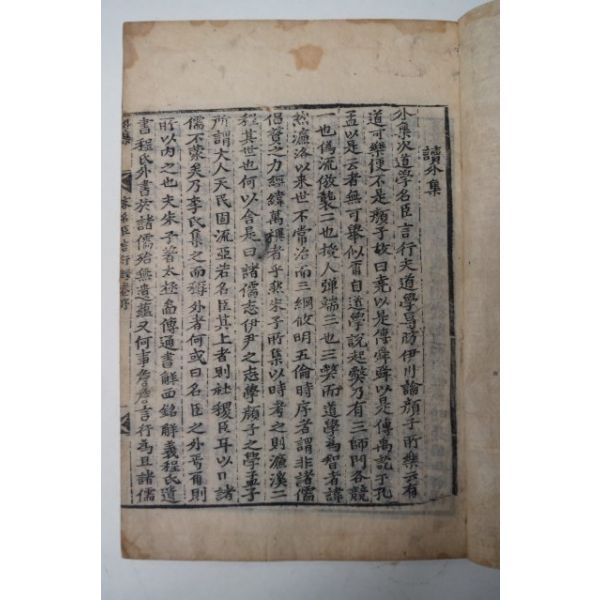 讀外集
外集次道學名臣言行夫道學昜昉伊川論顏子所樂云有
道可樂便不是顏子故曰堯以是傳舜舜以是傳禹訖于孔
孟以是云者無可擧似爾自道學說起獘乃有三師門各競
一也僞流倣襲二也投人彈端三也三獘而道學爲智者諱
然濂洛以來世不常治而三綱攸明五倫時序者謂非諸儒
倡賛之力經緯萬穪者乎然朱子所集以時考之則濂溪二
程其世也何以舍是曰諸儒志伊尹之志學顏子之學孟子
所謂大人天民固流亞若名臣其上者則社稷臣耳以口諸
儒不蒙矣乃李氏集之而稱外者何或曰名臣之外焉有則
所以内之也夫朱子著太極啚傳通書解西銘解義程氏遺
書程氏外書於諸儒殆無遺蘊又何事詹詹言行爲且諸儒